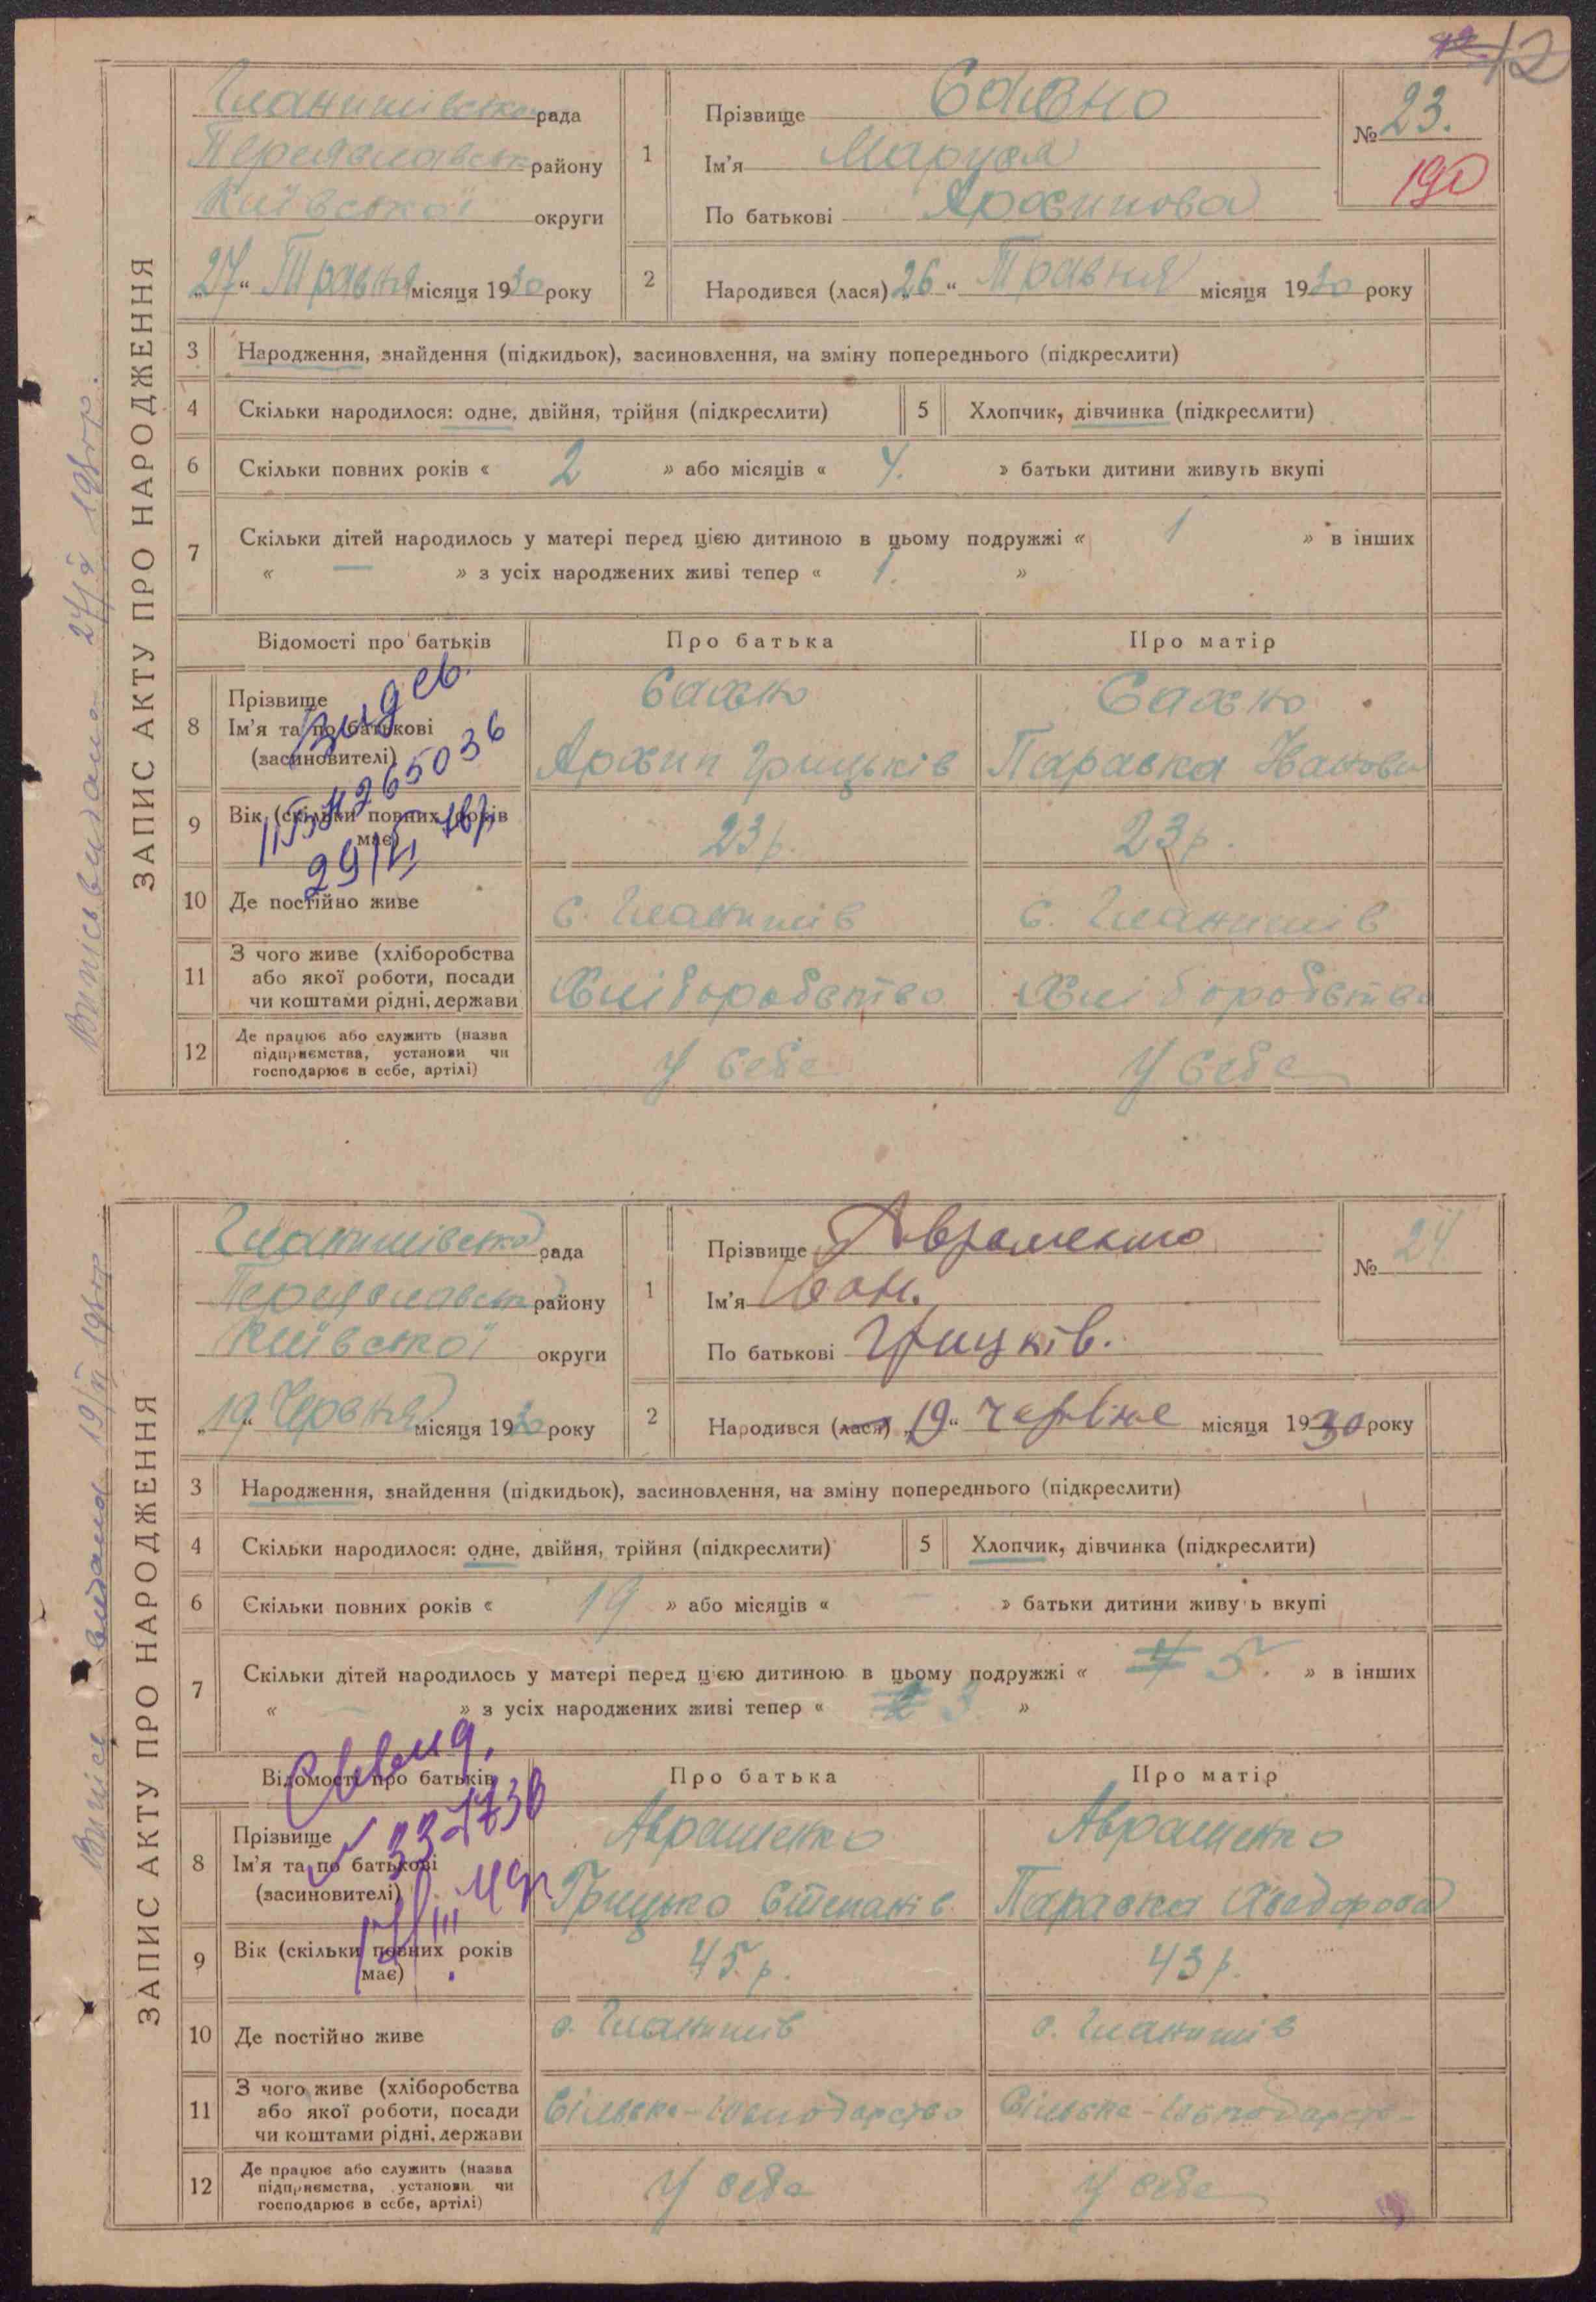 12
ЗАПИС АКТУ ПРО НАРОДЖЕННЯ
Гланишівська рада
Переяславськ району
Київської округи
„27“ Травня місяця 1930 року
1
Прізвище Сахно
Ім'я Маруся
По батькові Архипова
№ 23.
190
2
Народився (лася) „26“ Травня місяця 1930 року
3 Народження, знайдення (підкидьок), засиновлення, на зміну попереднього (підкреслити)
4 Скільки народилося: одне, двійня, трійня (підкреслити) 5 Хлопчик, дівчинка (підкреслити)
6 Скільки повних років « 2 » або місяців « 4. » батьки дитини живуть вкупі
7 Скільки дітей народилось у матері перед цією дитиною в цьому подружжі « 1 » в інших
« — » з усіх народжених живі тепер « 1. »
Відомості про батьків Про батька Про матір
8 Прізвище Ім'я та по батькові (засиновителі)
Сахно Сахно
Архип Грицьків Параска Іванова
9 Вік (скільки повних років має) 23 р. 23 р.
10 Де постійно живе с. Гланишів с. Гланишів
11 З чого живе (хліборобства або якої роботи, посади чи коштами рідні, держави Хліборобство Хліборобство
12 Де працює або служить (назва підприємства, установи чи господарює в себе, артілі) У себе У себе
265036
Випись видана
ЗАПИС АКТУ ПРО НАРОДЖЕННЯ
Гланишівська рада
Переяславськ району
Київської округи
„19“ Червня місяця 1930 року
1
Прізвище Авраменко
Ім'я Іван.
По батькові Грицків.
№ 24
2
Народився (лася) „19“ червня місяця 1930 року
3 Народження, знайдення (підкидьок), засиновлення, на зміну попереднього (підкреслити)
4 Скільки народилося: одне, двійня, трійня (підкреслити) 5 Хлопчик, дівчинка (підкреслити)
6 Скільки повних років « 19 » або місяців « — » батьки дитини живуть вкупі
7 Скільки дітей народилось у матері перед цією дитиною в цьому подружжі « 5. » в інших
« — » з усіх народжених живі тепер « 3. »
Відомості про батьків Про батька Про матір
8 Прізвище Ім'я та по батькові (засиновителі)
Авраменко Авраменко
Грицько Степанів Параска Хведорова
9 Вік (скільки повних років має) 45 р. 43 р.
10 Де постійно живе с. Гланишів с. Гланишів
11 З чого живе (хліборобства або якої роботи, посади чи коштами рідні, держави Сільське-господарство Сільське-господарство
12 Де працює або служить (назва підприємства, установи чи господарює в себе, артілі) У себе У себе
Випись видана